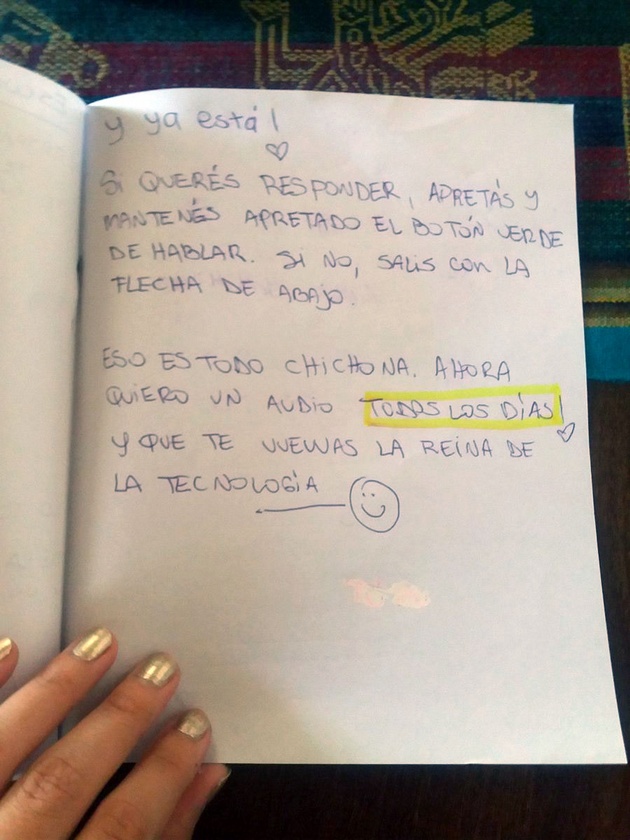 y ya está!
SI QUERÉS RESPONDER, APRETÁS Y
MANTENÉS APRETADO EL BOTÓN VERDE
DE HABLAR. SI NO, SALIS CON LA
FLECHA DE ABAJO.
ESO ES TODO CHICHONA. AHORA
QUIERO UN AUDIO TODOS LOS DÍAS!
Y QUE TE VUELVAS LA REINA DE
LA TECNOLOGÍA